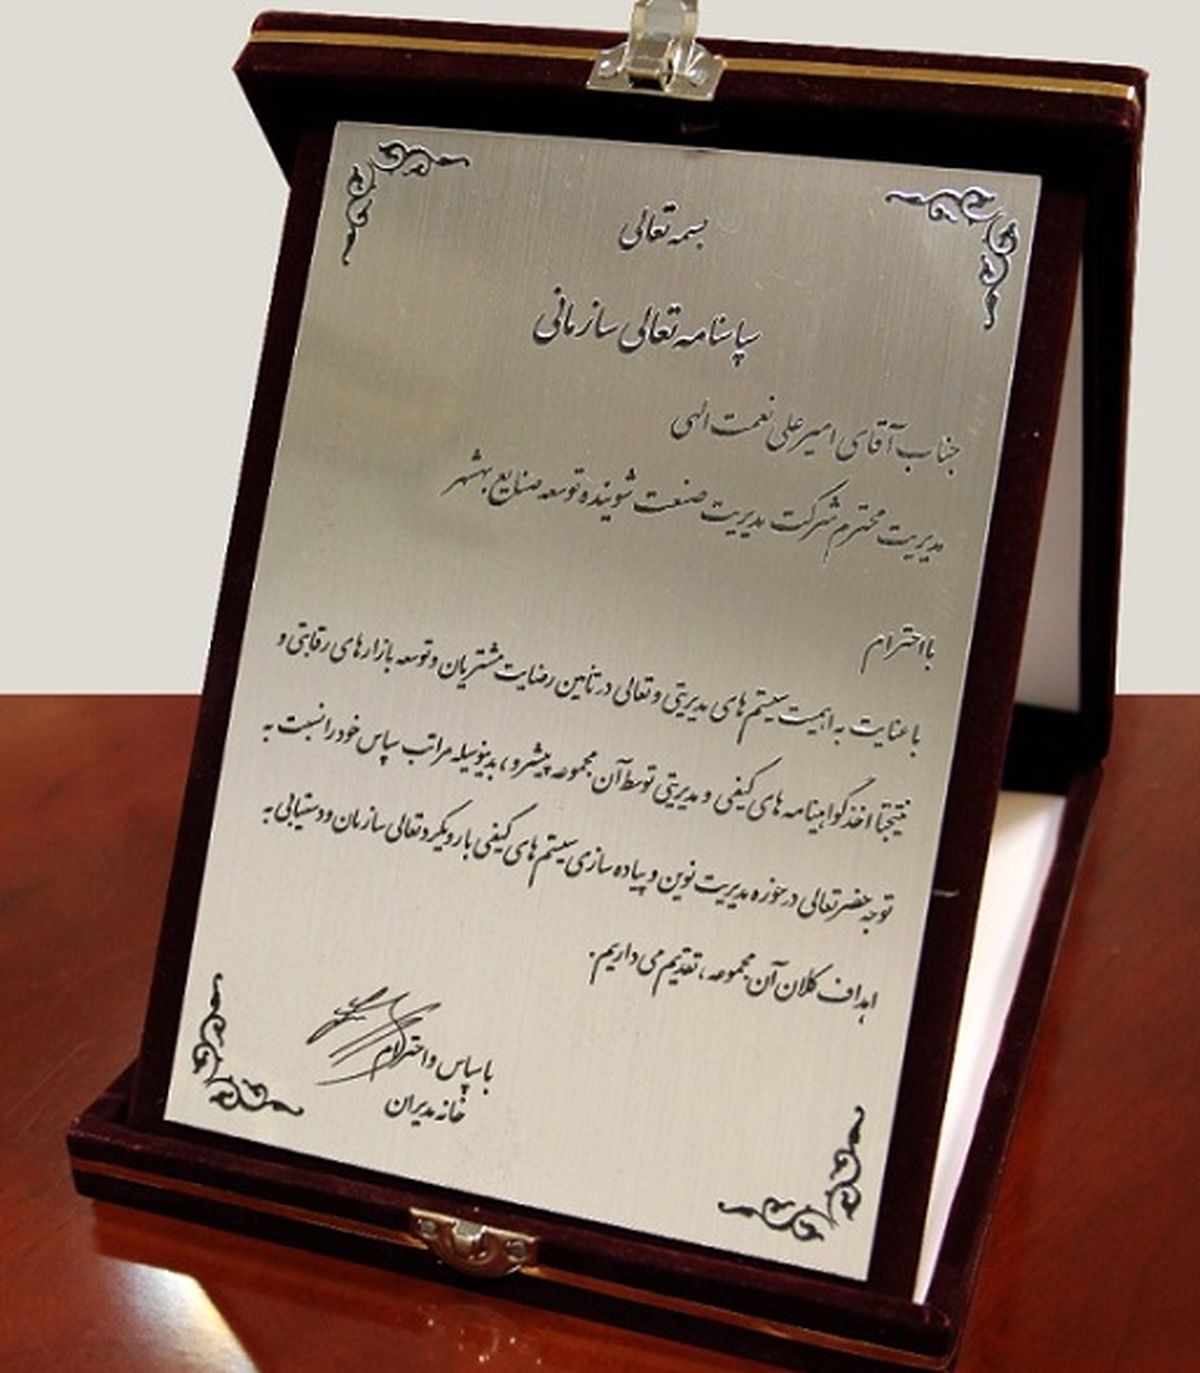 بسمه تعالی
سپاسنامه تعالی سازمانی
جناب آقای امیرعلی نعمت الهی
مدیریت محترم شرکت مدیریت صنعت شوینده توسعه صنایع بهشهر
با احترام
با عنایت به اهمیت سیستم های مدیریتی و تعالی در تامین رضایت مشتریان و توسعه بازارهای رقابتی و
نتیجتا اخذ گواهینامه های کیفی و مدیریتی توسط آن مجموعه پیشرو، بدینوسیله مراتب سپاس خود را نسبت به
توجه حضرتعالی در حوزه مدیریت نوین و پیاده سازی سیستم های کیفی با رویکرد تعالی سازمان و دستیابی به
اهداف کلان آن مجموعه، تقدیم می داریم.
با سپاس و احترام
خانه مدیران